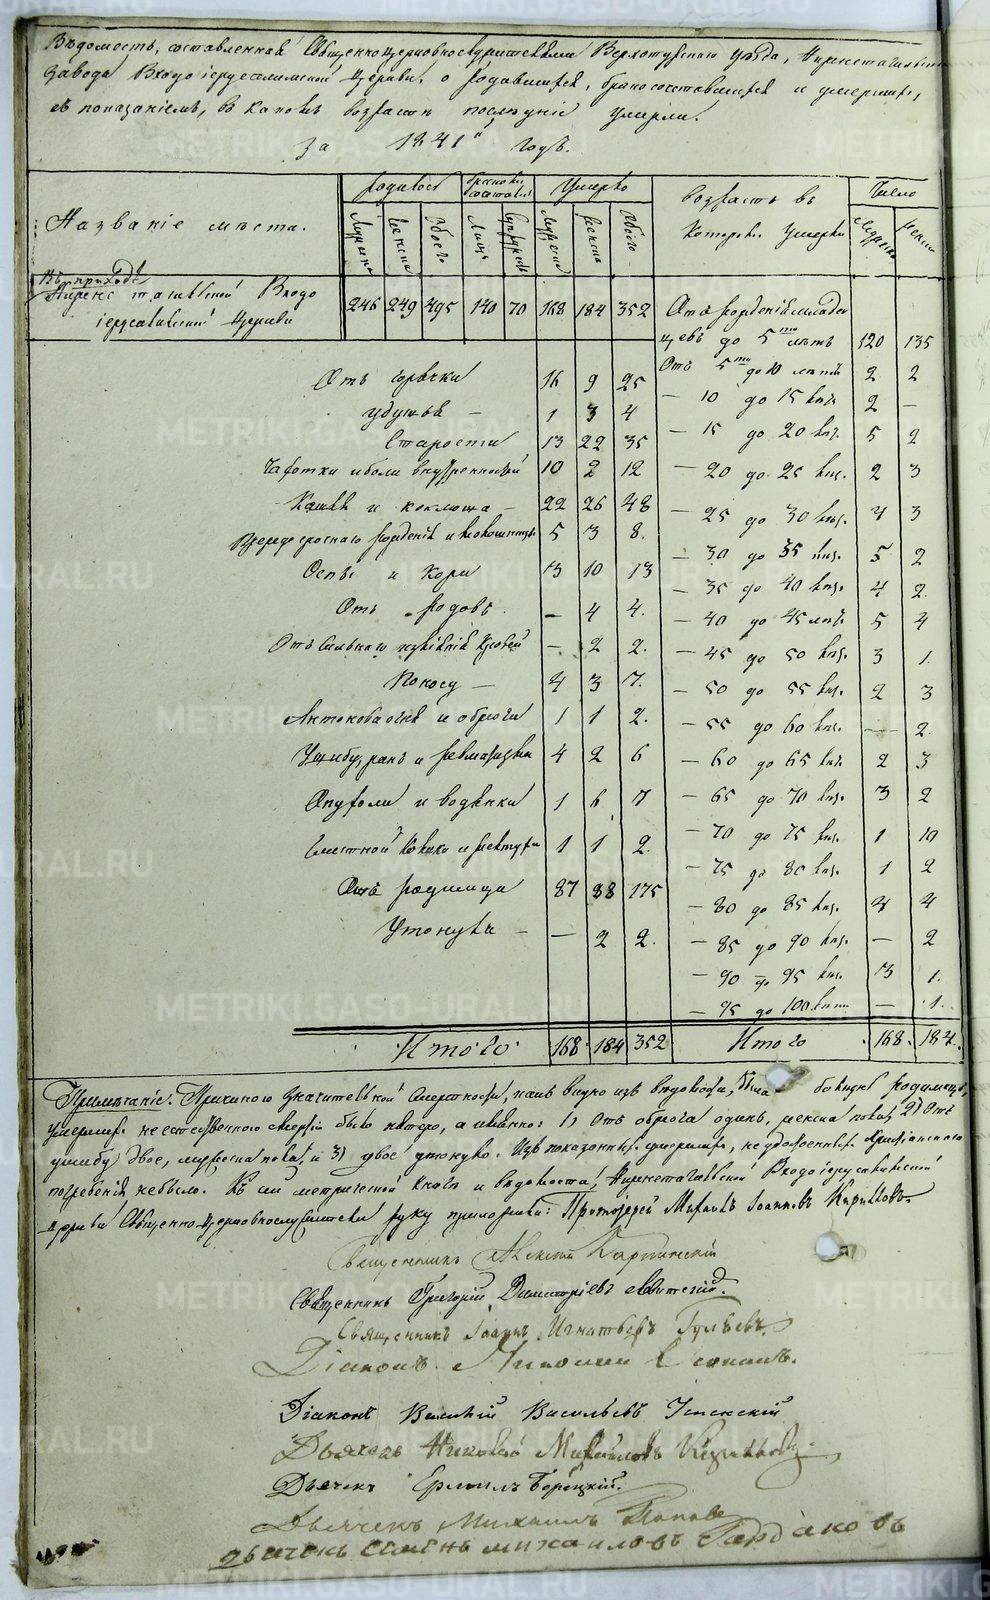 Вѣдомость, составленная Священноцерковнослужителями Верхотурскаго уѣзда, Нижнетагильскаго
Завода Входоіерусалимской Церкви, о родившихся, бракосочетавшихся и умершихъ,
съ показаніемъ, въ какомъ возрастѣ послѣдніе умерли.
За 1841й годъ.
Названіе мѣста. Родилось Умерло Возрастъ въ которомъ умерли Число
Мужеска Женска Обоего Лицъ Супружествъ Мужеска Женска Обоего Мужска Женска
Въ приходѣ
Нижнетагильской Входо
іерусалимской Церкви 246 249 495 140 70 168 184 352
Отъ рожденія младен
цевъ до 5ти лѣтъ 120 135
Отъ 5ти до 10 лѣтъ 2 2
— 10 до 15 2 —
— 15 до 20 5 2
— 20 до 25 2 3
— 25 до 30 4 3
— 30 до 35 5 2
— 35 до 40 4 2.
— 40 до 45 лѣтъ 5 4
— 45 до 50 3 1.
— 50 до 55 2 3
— 55 до 60 — 2.
— 60 до 65 2 3
— 65 до 70 3 2
— 70 до 75 1 10
— 75 до 80 1 2
— 80 до 85 4 4
— 85 до 90 — 2
— 90 до 95 3 1.
— 95 до 100 — 1.
Итого 168. 184.
Отъ горячки 16 9 25
удушья — 1 3 4
Старости 13 22 35
Чахотки и боли внутренностей 10 2 12
Кашля и коклюша — 22 26 48
5 3 8.
Оспы и Кори 3 10 13
Отъ родовъ. — 4 4.
— 2 2.
Поносу — 4 3 7.
1 1 2.
Ушибу, ранъ и ревматизма 4 2 6
и водянки 1 6 7
1 1 2.
Отъ родимца 87 88 175
Утонувъ — — 2 2.
Итого 168 184 352
Примѣчаніе. Причиною значительной смертности, какъ видно изъ вѣдомости, была болѣзнь родимецъ,
умершихъ неестественною смертію было пятеро, а именно: 1) отъ одинъ, женска пола, 2) Отъ
ушибу двое, мужеска пола, и 3) двое утонуло. Изъ показанныхъ умершихъ, не удостоенныхъ Христіанскаго
погребенія не было. Къ сей метрической книгѣ и вѣдомости, Нижнетагильской Входоіерусалимской
церкви Священно-церковнослужители руку приложили: Протоіерей Михаилъ Іоанновъ
Священникъ Алексій Карпинскій
Священникъ Григорій Димитріевъ
Священникъ Іоаннъ Игнатьевъ
Діаконъ Николай
Діаконъ Василій Васильевъ
Дьячекъ Николай Михайловъ
Дьячекъ Ермилъ
Дьячекъ Михаилъ Поповъ
дьячекъ семенъ михаиловъ
METRIKI.GASO-URAL.RU